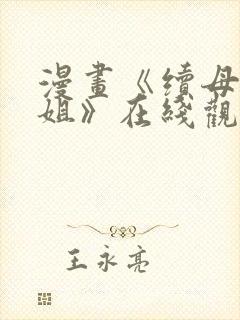 漫畫《續母
姐》在綫觀
王永亮